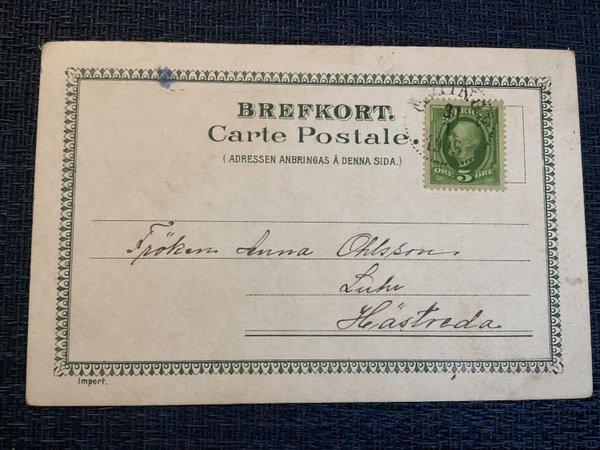 BREFKORT.
Carte Postale.
(ADRESSEN ANBRINGAS Å DENNA SIDA.)
SVERIGE
ÖRE 5 ÖRE
Fröken Anna Ohlsson
Luhr
Hästveda
Import.